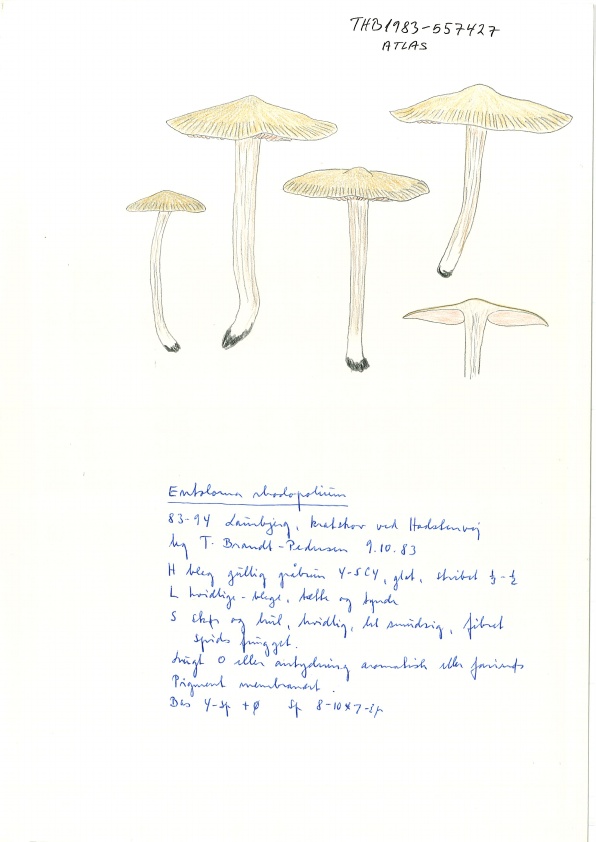 THB1983-557427
ATLAS
Entoloma rhodopolium
83-94 Laurbjerg, kratskov ved Hadstenvej
leg T. Brandt-Pedersen 9.10.83
H bleg gullig gråbrun 4-5C4, glat, stribet ⅓-½
L hvidlige-blege, tætte og tynde
S skør og hul, hvidlig, let smudsig, fibret
spids fnugget.
Lugt 0 eller antydning aromatisk eller farinøs
Pigment membranært.
Bas 4-sp + Sp 8-10x7-